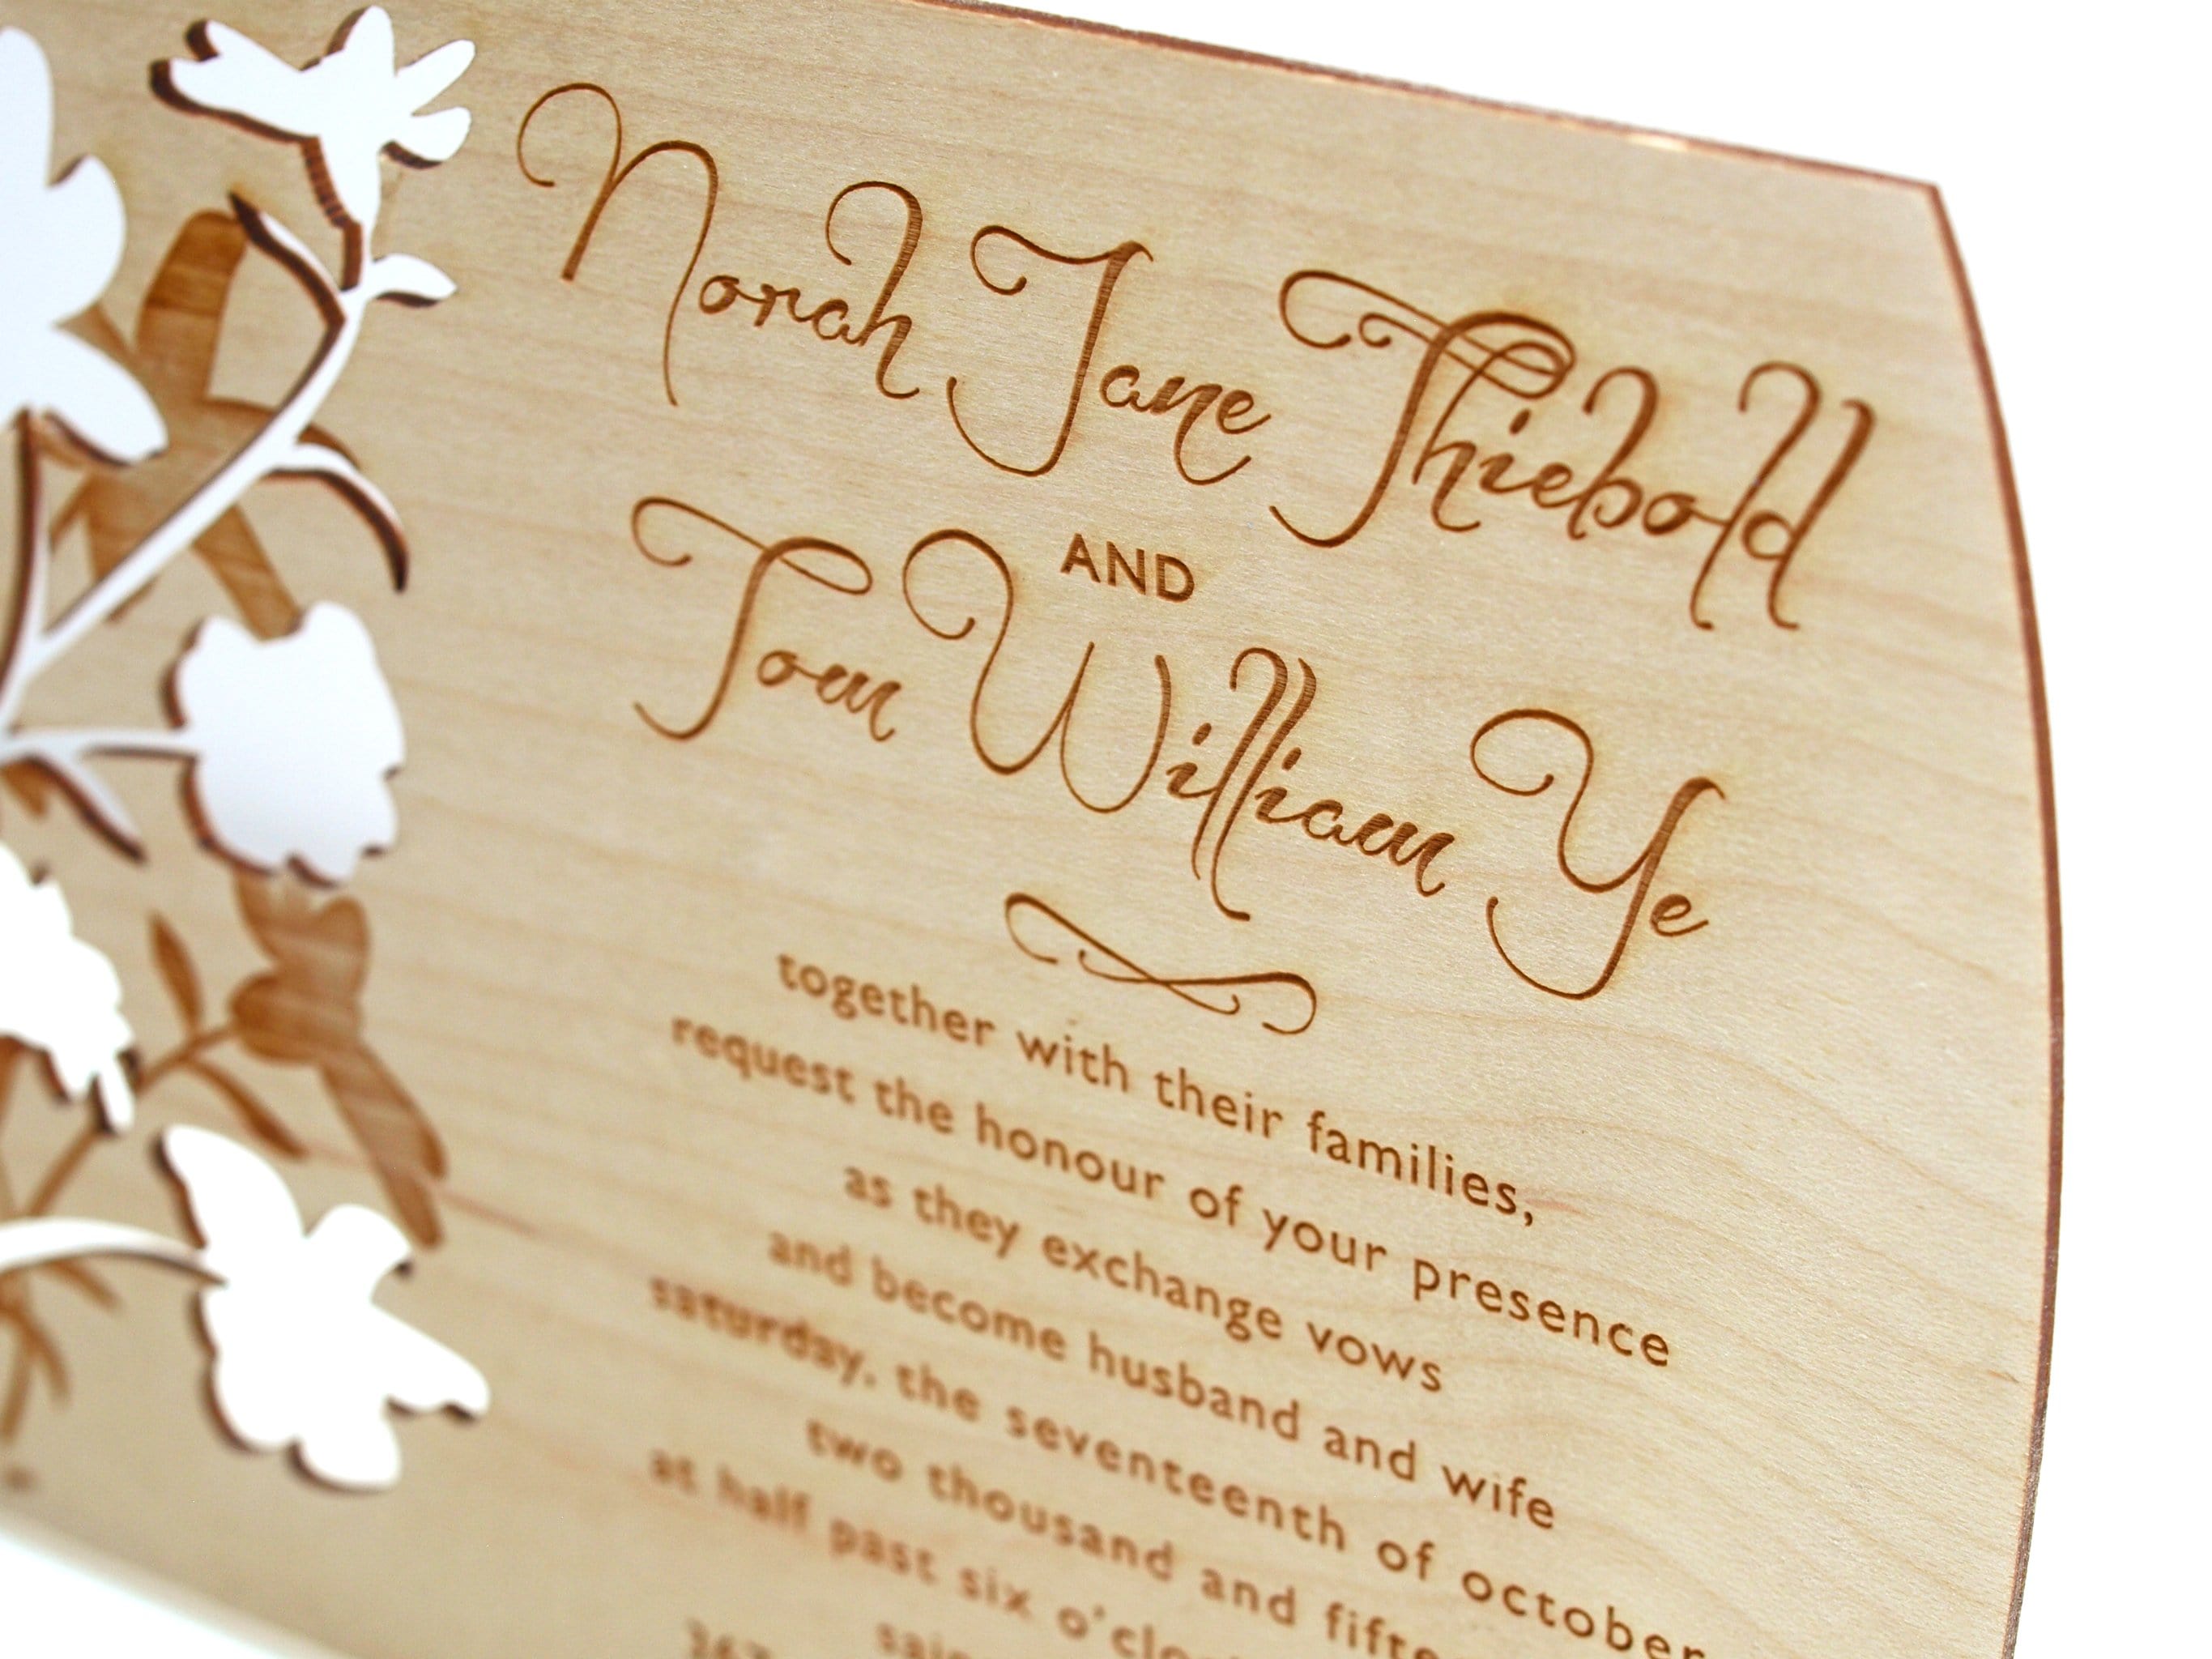 Norah Jane Thiebold
AND
Tom William Ye
together with their families,
request the honour of your presence
as they exchange vows
and become husband and wife
saturday, the seventeenth of october
two thousand and
at half past six